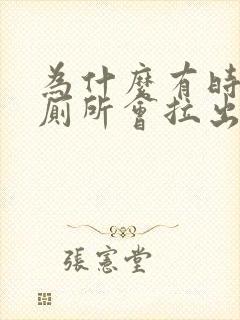 為什麼有時
廁所會拉出
張憲堂